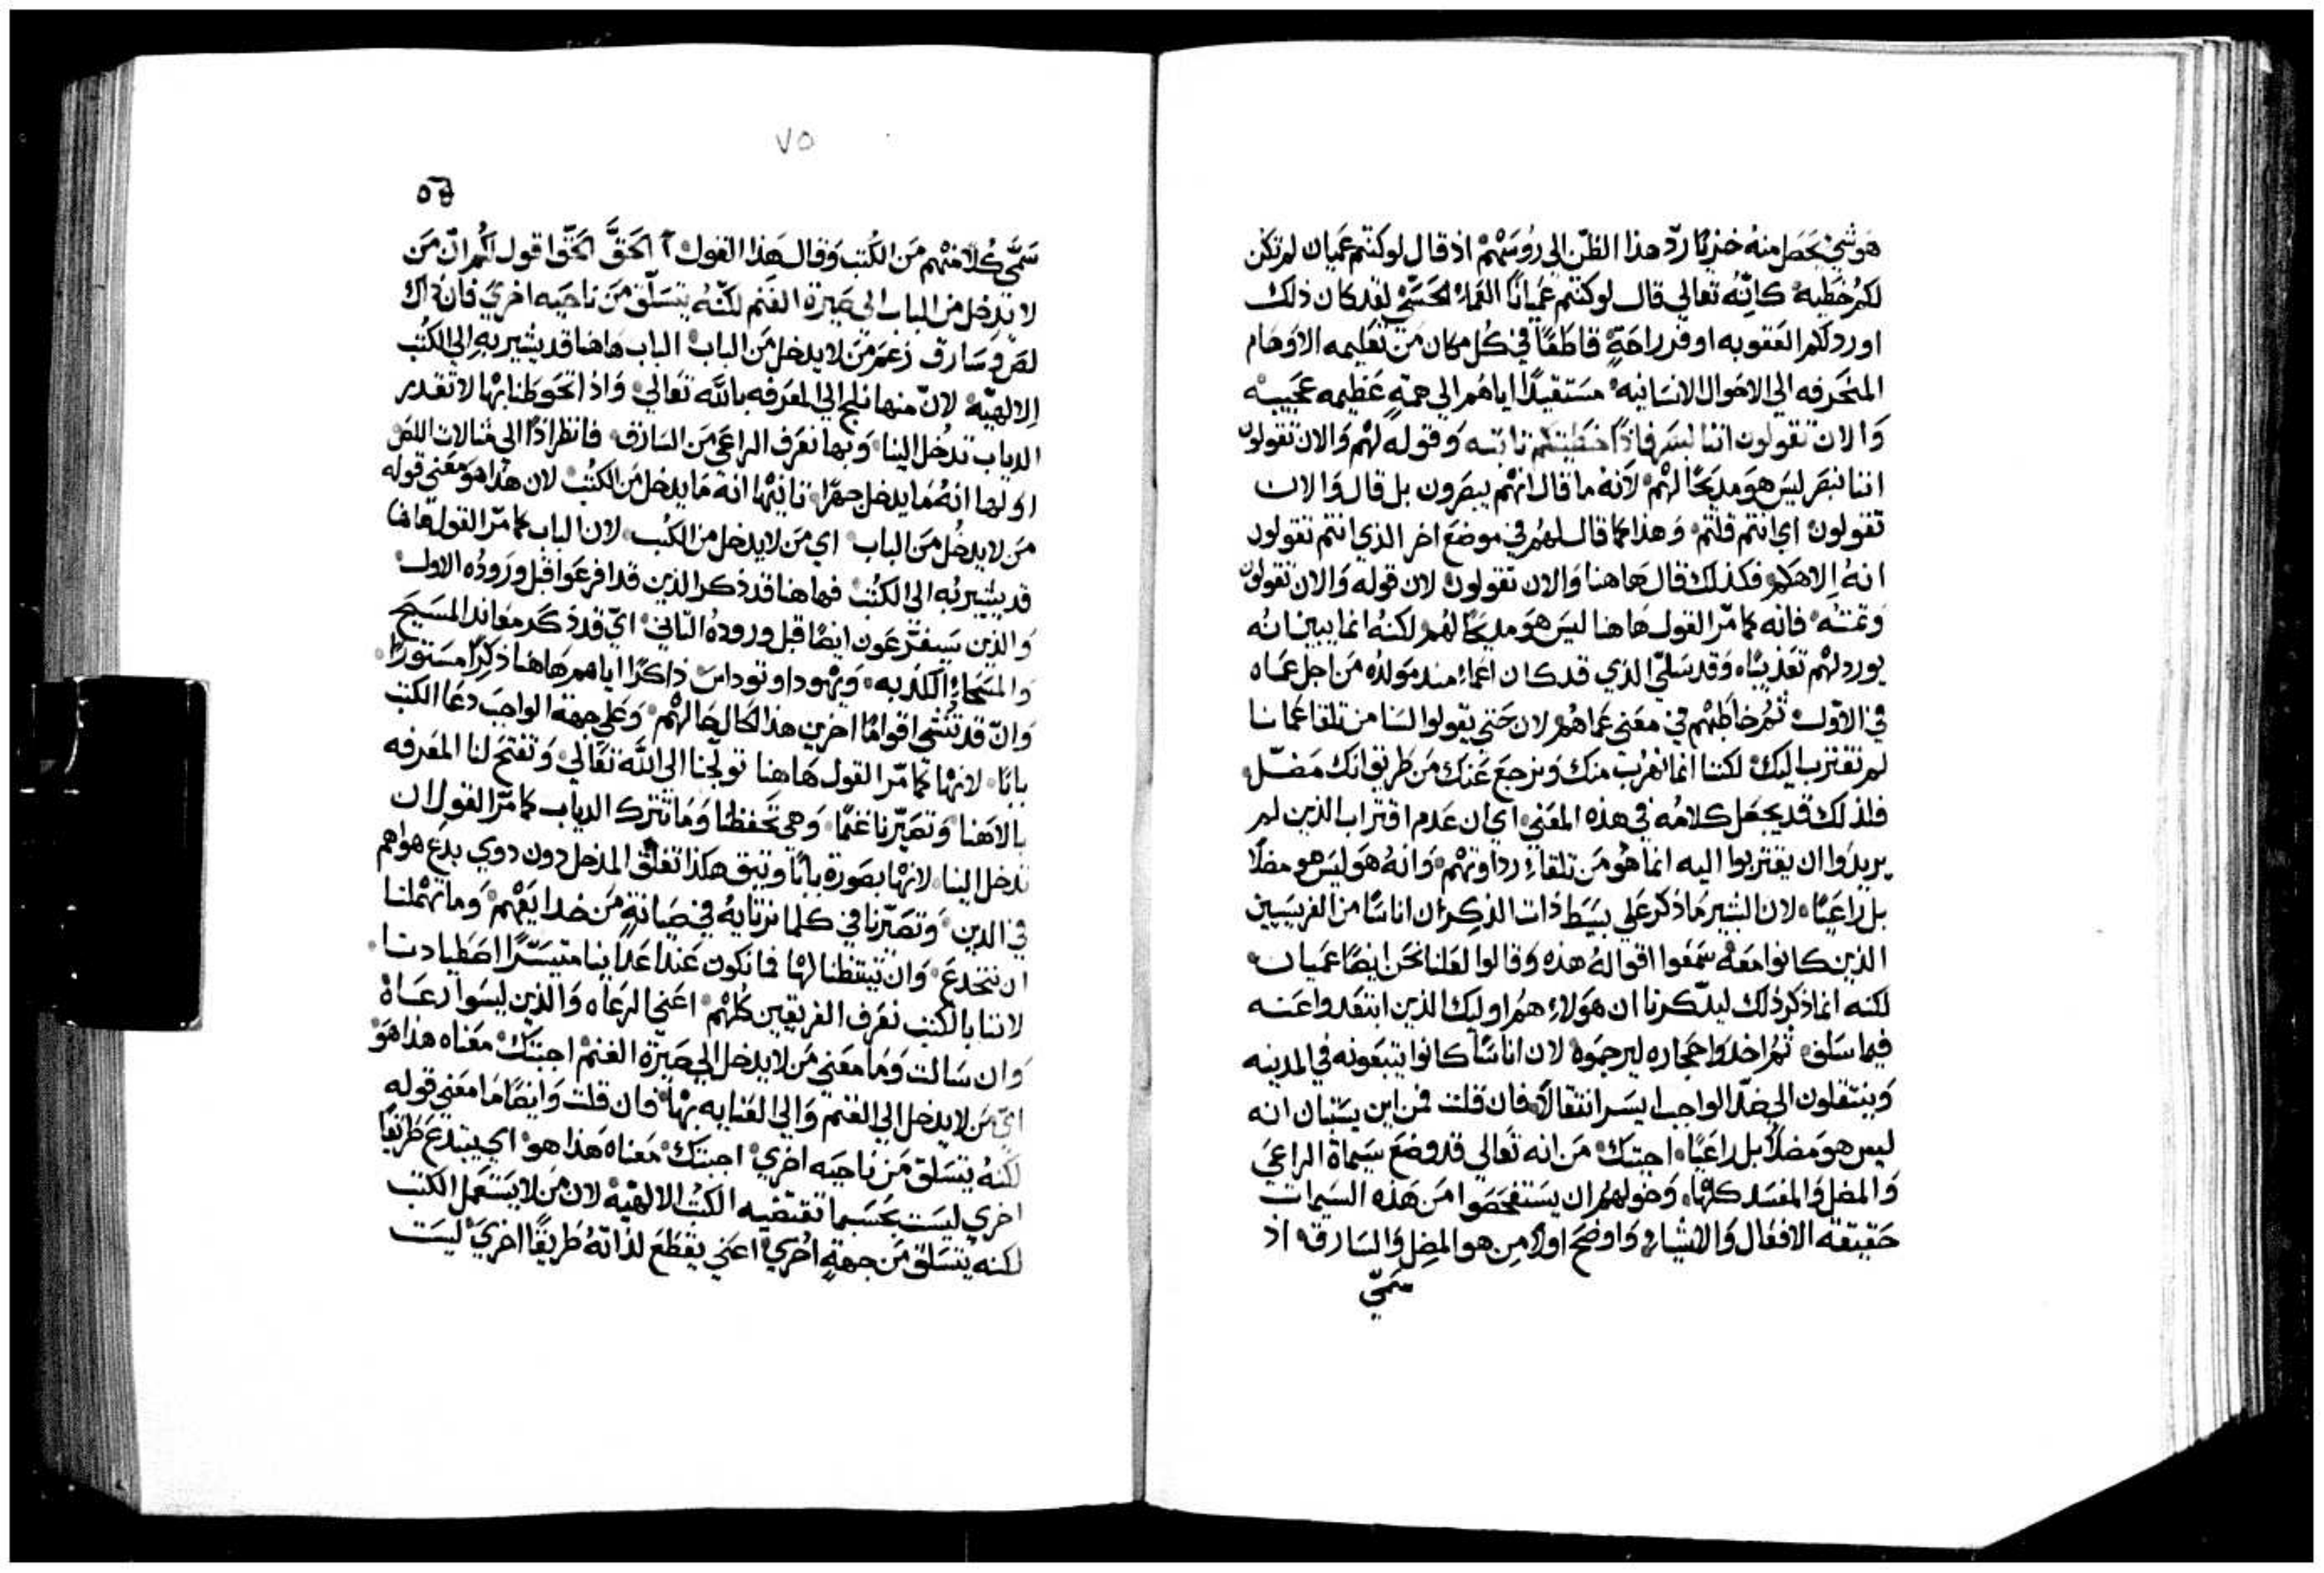 هو شيء يحصل منه خزيًا ردّ هذا الظنّ الي رؤسهم اذ قال لو كنتم عميان لم تكن
لكم خطيه كانّه تعالي قال لو كنتم عميانًا العماء الحسّي لقد كان ذلك
اورد لكم العقوبه اوفر راحةٍ قاطعًا في كل مكان من تعليمه الاوهام
المنحرفه الي الاحوال الانسانيه مستقيدًا اياهم الي همّةٍ عظيمه عجيبه
والان تقولون اننا نبصر فاذًا خطيتكم ثابته وقوله لهم والان تقولون
اننا نبصر ليس هو مديحًا لهم لانه ما قال انهم يبصرون بل قال والان
تقولون اي انتم قلتم وهذا كما قال لهم في موضع اخر الذي انتم تقولون
انه الاهكم فكذلك قال هاهنا والان تقولون لان قوله والان تقولون
وتمته فانه كما مرّ القول هاهنا ليس هو مديحًا لهم لكنه انما يبين انه
يورد لهم تعذيبًا وقد سلّي الذي قد كان اعماء منذ مولده من اجل عماه
في الاول ثم خاطبهم في معني عماهم لان حتي يقولوا لسنا من تلقا عمانا
لم نقترب اليك لكننا انما نهرب منك ونرجع عنك من طريق انك مضلّ
فلذلك قد يجعل كلامه في هذه المعني اي ان عدم اقتراب الذين لم
يريدوا ان يقتربوا اليه انما هو من تلقاء رداوتهم وانه هو ليس هو مضلًا
بل راعيًا لان البشير ما ذكر علي بسيط ذات الذكر ان اناسًا من الفريسيين
الذين كانوا معه سمعوا اقواله هذه وقالوا لعلنا نحن ايضًا عميان
لكنه انما ذكر ذلك ليذّكرنا ان هولاء هم اوليك الذين ابتعدوا عنه
فيما سلف ثم اخذوا حجاره ليرجموه لان اناسًا كانوا يتبعونه في المدينه
وينتقلون الي ضدّ الواجب ايسر انتقالًا فان قلت فمن اين يستبان انه
ليس هو مضلًا بل راعيًا اجبتك من انه تعالي قد وضع سيماة الراعي
والمضل والمفسد كلها وخولهم ان يستفحصوا من هذه السيمات
حقيقة الافعال والاشياء واوضح اولًا من هو المضل والسارق اذ
سمّي
٧٥
سمّي كلًا منهم من الكتب وقال هذا القول الحقّ الحقّ اقول لكم ان من
لا يدخل من الباب الي صيرة الغنم لكنه يتسلّق من ناحيه اخري فان ذاك
لصّ وسارق زعم من لا يدخل من الباب الباب هاهنا قد يشير به الي الكتب
الالهيّه لان منها نلج الي المعرفه بالله تعالي واذ اتحوطنا بها لا تقدر
الدياب تدخل الينا وبها نعرف الراعي من السارق فانظر اذًا الي فعالات اللص
اولها انه ما يدخل جهرًا ثانيها انه ما يدخل من الكتب لان هذا هو معني قوله
من لا يدخل من الباب اي من لا يدخل من الكتب لان الباب كما مرّ القول هاهنا
قد يشير به الي الكتب فهاهنا قد ذكر الذين قد افرعوا قبل وروده الاول
والذين سيفترعون ايضًا قبل وروده الثاني اي قد ذكر معاند المسيح
والمسحاء الكذبه ويهودا وتوداس ذاكرًا اياهم هاهنا ذكرًا مستورًا
وان قد تنشي اقوامًا اخرين هذا الحال حالهم وعلي جهة الواجب دعا الكتب
بابًا لانها كما مرّ القول هاهنا تولّجنا الي الله تعالي وتفتح لنا المعرفه
بالاهنا وتصيّرنا غنمًا وهي تحفظنا وما تترك الدياب كما مرّ القول ان
تدخل الينا لانها بصورة بابًا وثيق هكذا تغلق المدخل دون ذوي بدع هواهم
في الدين وتصيّرنا في كلما نرتايه في صيانةٍ من خدايعهم وما تهملنا
ان ننخدع وان تيقظنا لها فما نكون عند اعداينا متيسّرًا اصطيادنا
لاننا بالكتب نعرف الفريقين كلهم اعني الرعاه والذين ليسوا رعاة
وان سالت وما معني من لا يدخل الي صيرة الغنم اجبتك معناه هذا هو
اي من لا يدخل الي الغنم والي العنايه بها فان قلت وايضًا ما معني قوله
لكنه يتسلق من ناحيه اخري اجبتك معناه هذا هو اي يبتدع طريقًا
اخري ليست بحسبما تقتضيه الكتب الالهيه لان من لا يستعمل الكتب
لكنه يتسلق من جهةٍ اخري اعني يقطع لذاته طريقًا اخري ليست